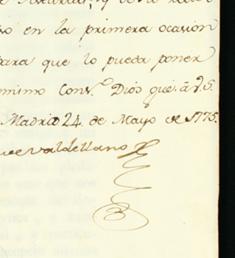 en la primera ocasión
para que lo pueda poner
mismo Cons.º Dios gue. á V.S.
Madrid 24. de Mayo de 1775.
Valdellano